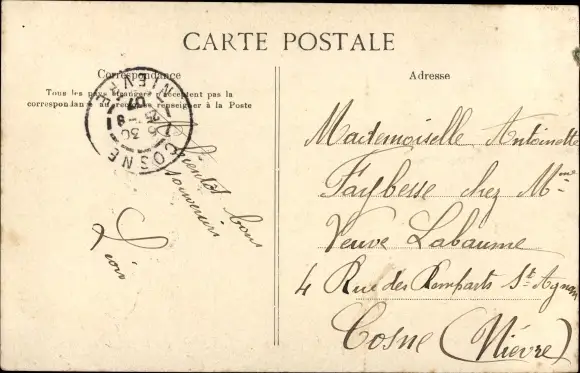 CARTE POSTALE
Correspondance
Tous les pays étrangers n'acceptent pas la
correspondance au recto se renseigner à la Poste
COSNE
NIÈVRE
bons
souvenirs
Léon
Adresse
Mademoiselle Antoinette
chez Mme
Veuve Labaume
4 Rue des Remparts St Agnan
Cosne (Nièvre)